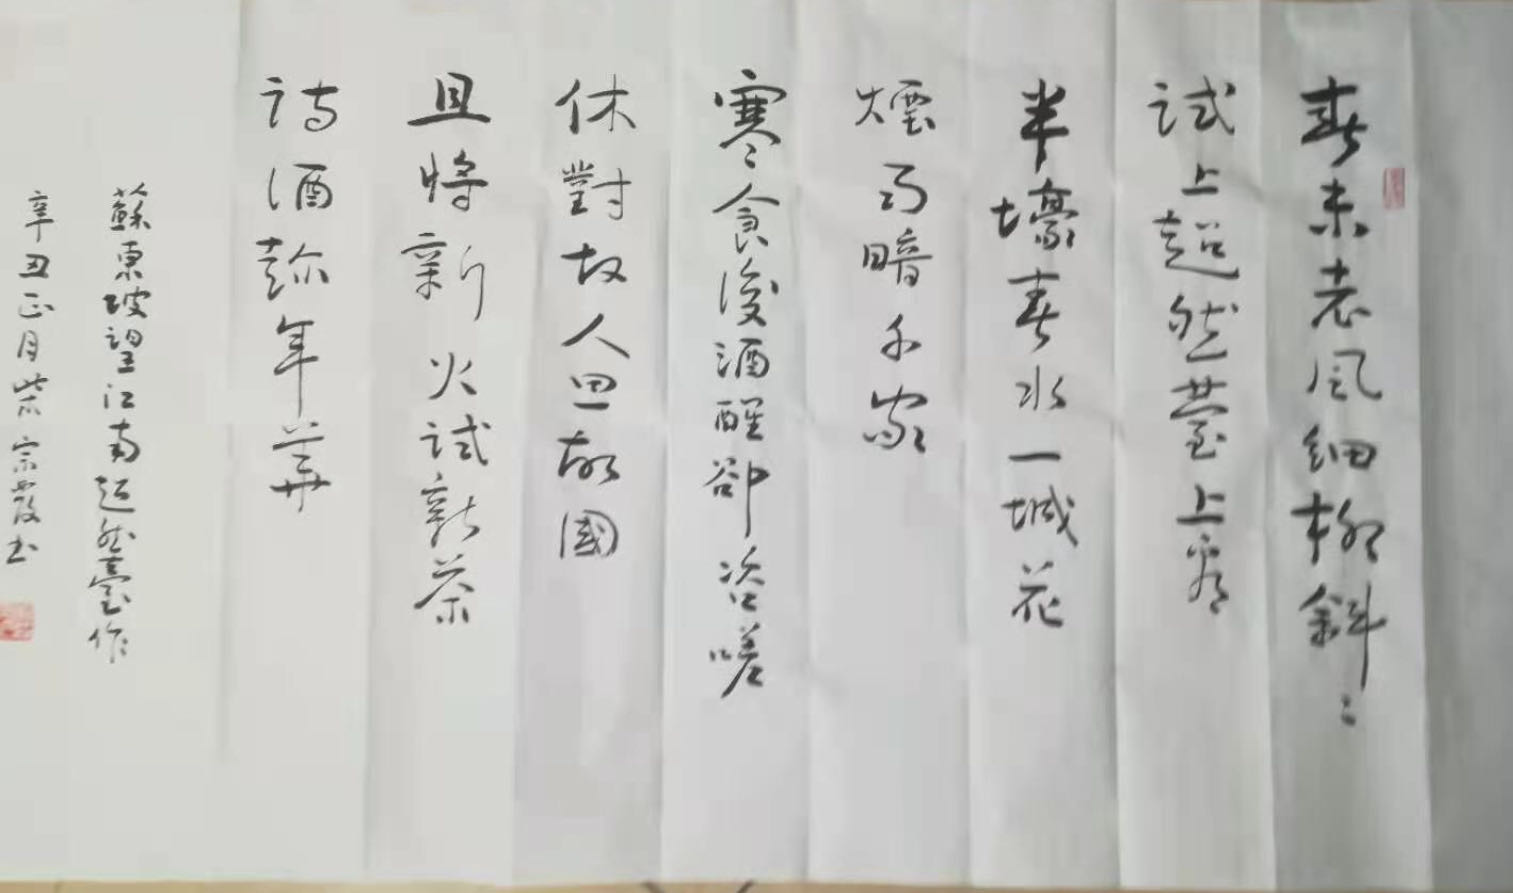 春未老風細柳斜二
試上超然臺上看
半壕春水一城花
煙雨暗千家
寒食後酒醒卻咨嗟
休對故人思故國
且將新火試新茶
詩酒趂年華
蘇東坡望江南超然臺作
辛丑正月柴宗霞书